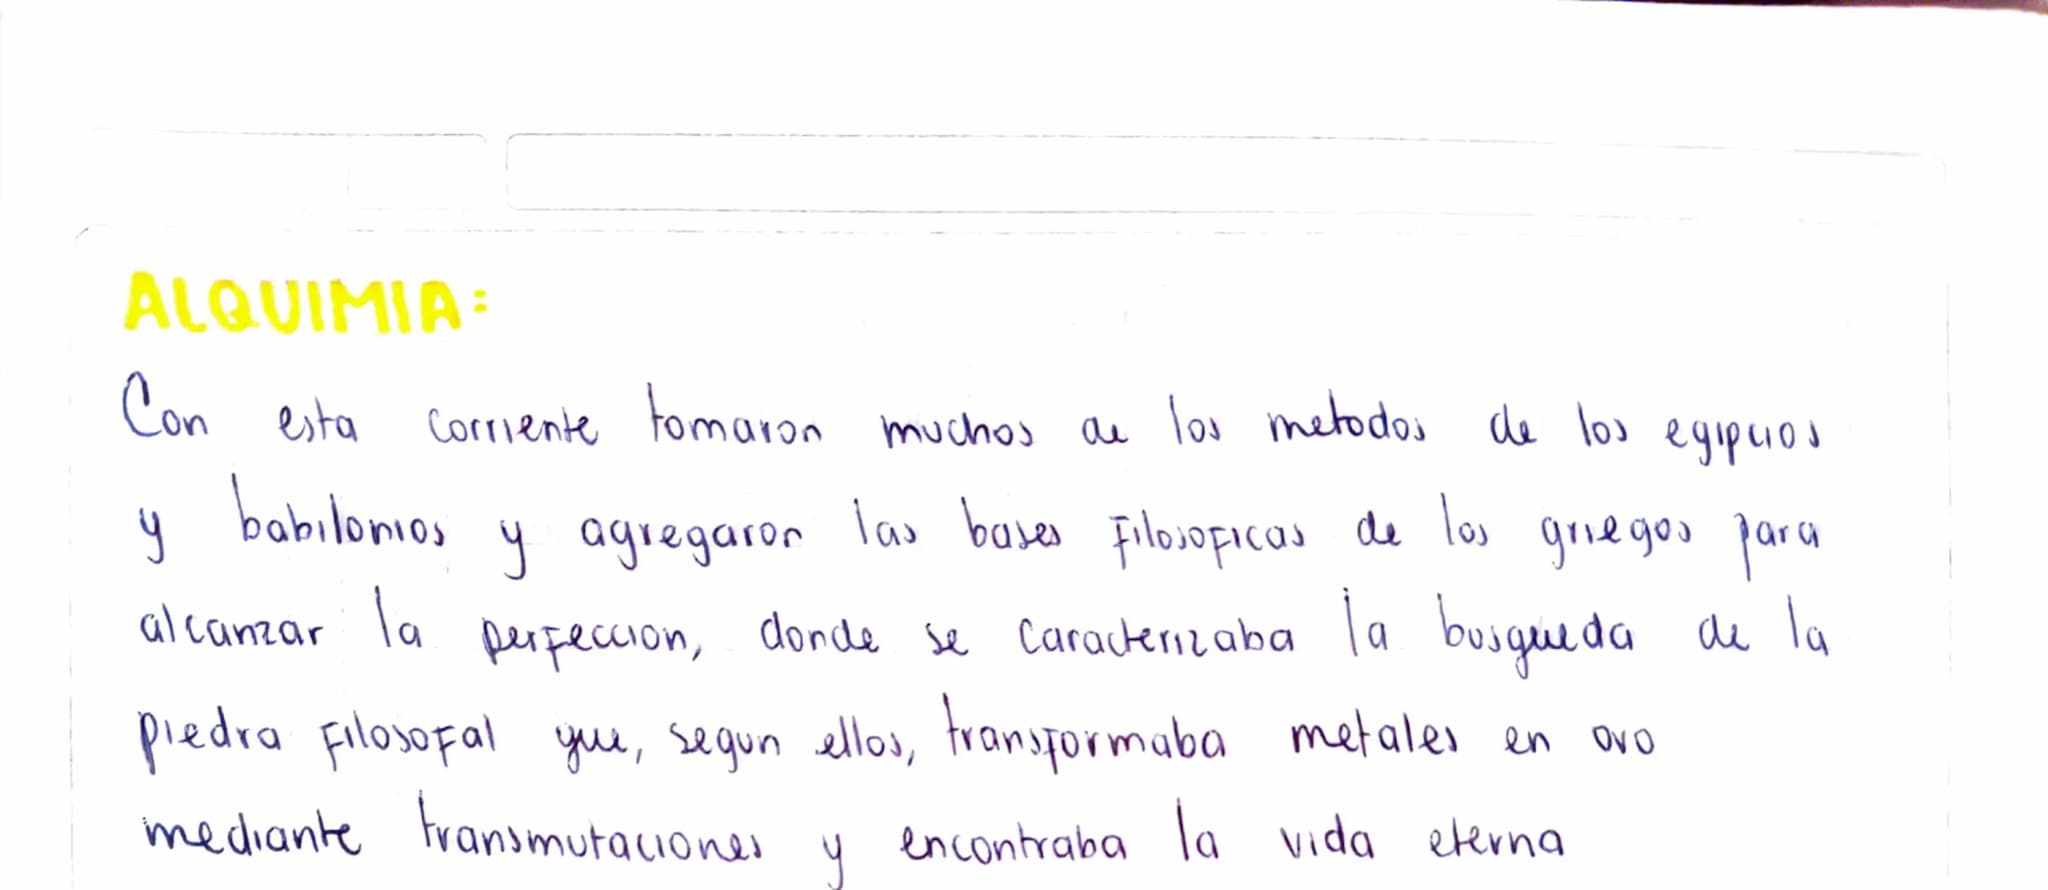 ALQUIMIA:
Con esta corriente tomaron muchos de los metodos de los egipcios
y babilonios y agregaron las bases filosoficas de los griegos para
alcanzar la perfeccion, donde se caracterizaba la busqueda de la
piedra filosofal que, segun ellos, transformaba metales en oro
mediante transmutaciones y encontraba la vida eterna